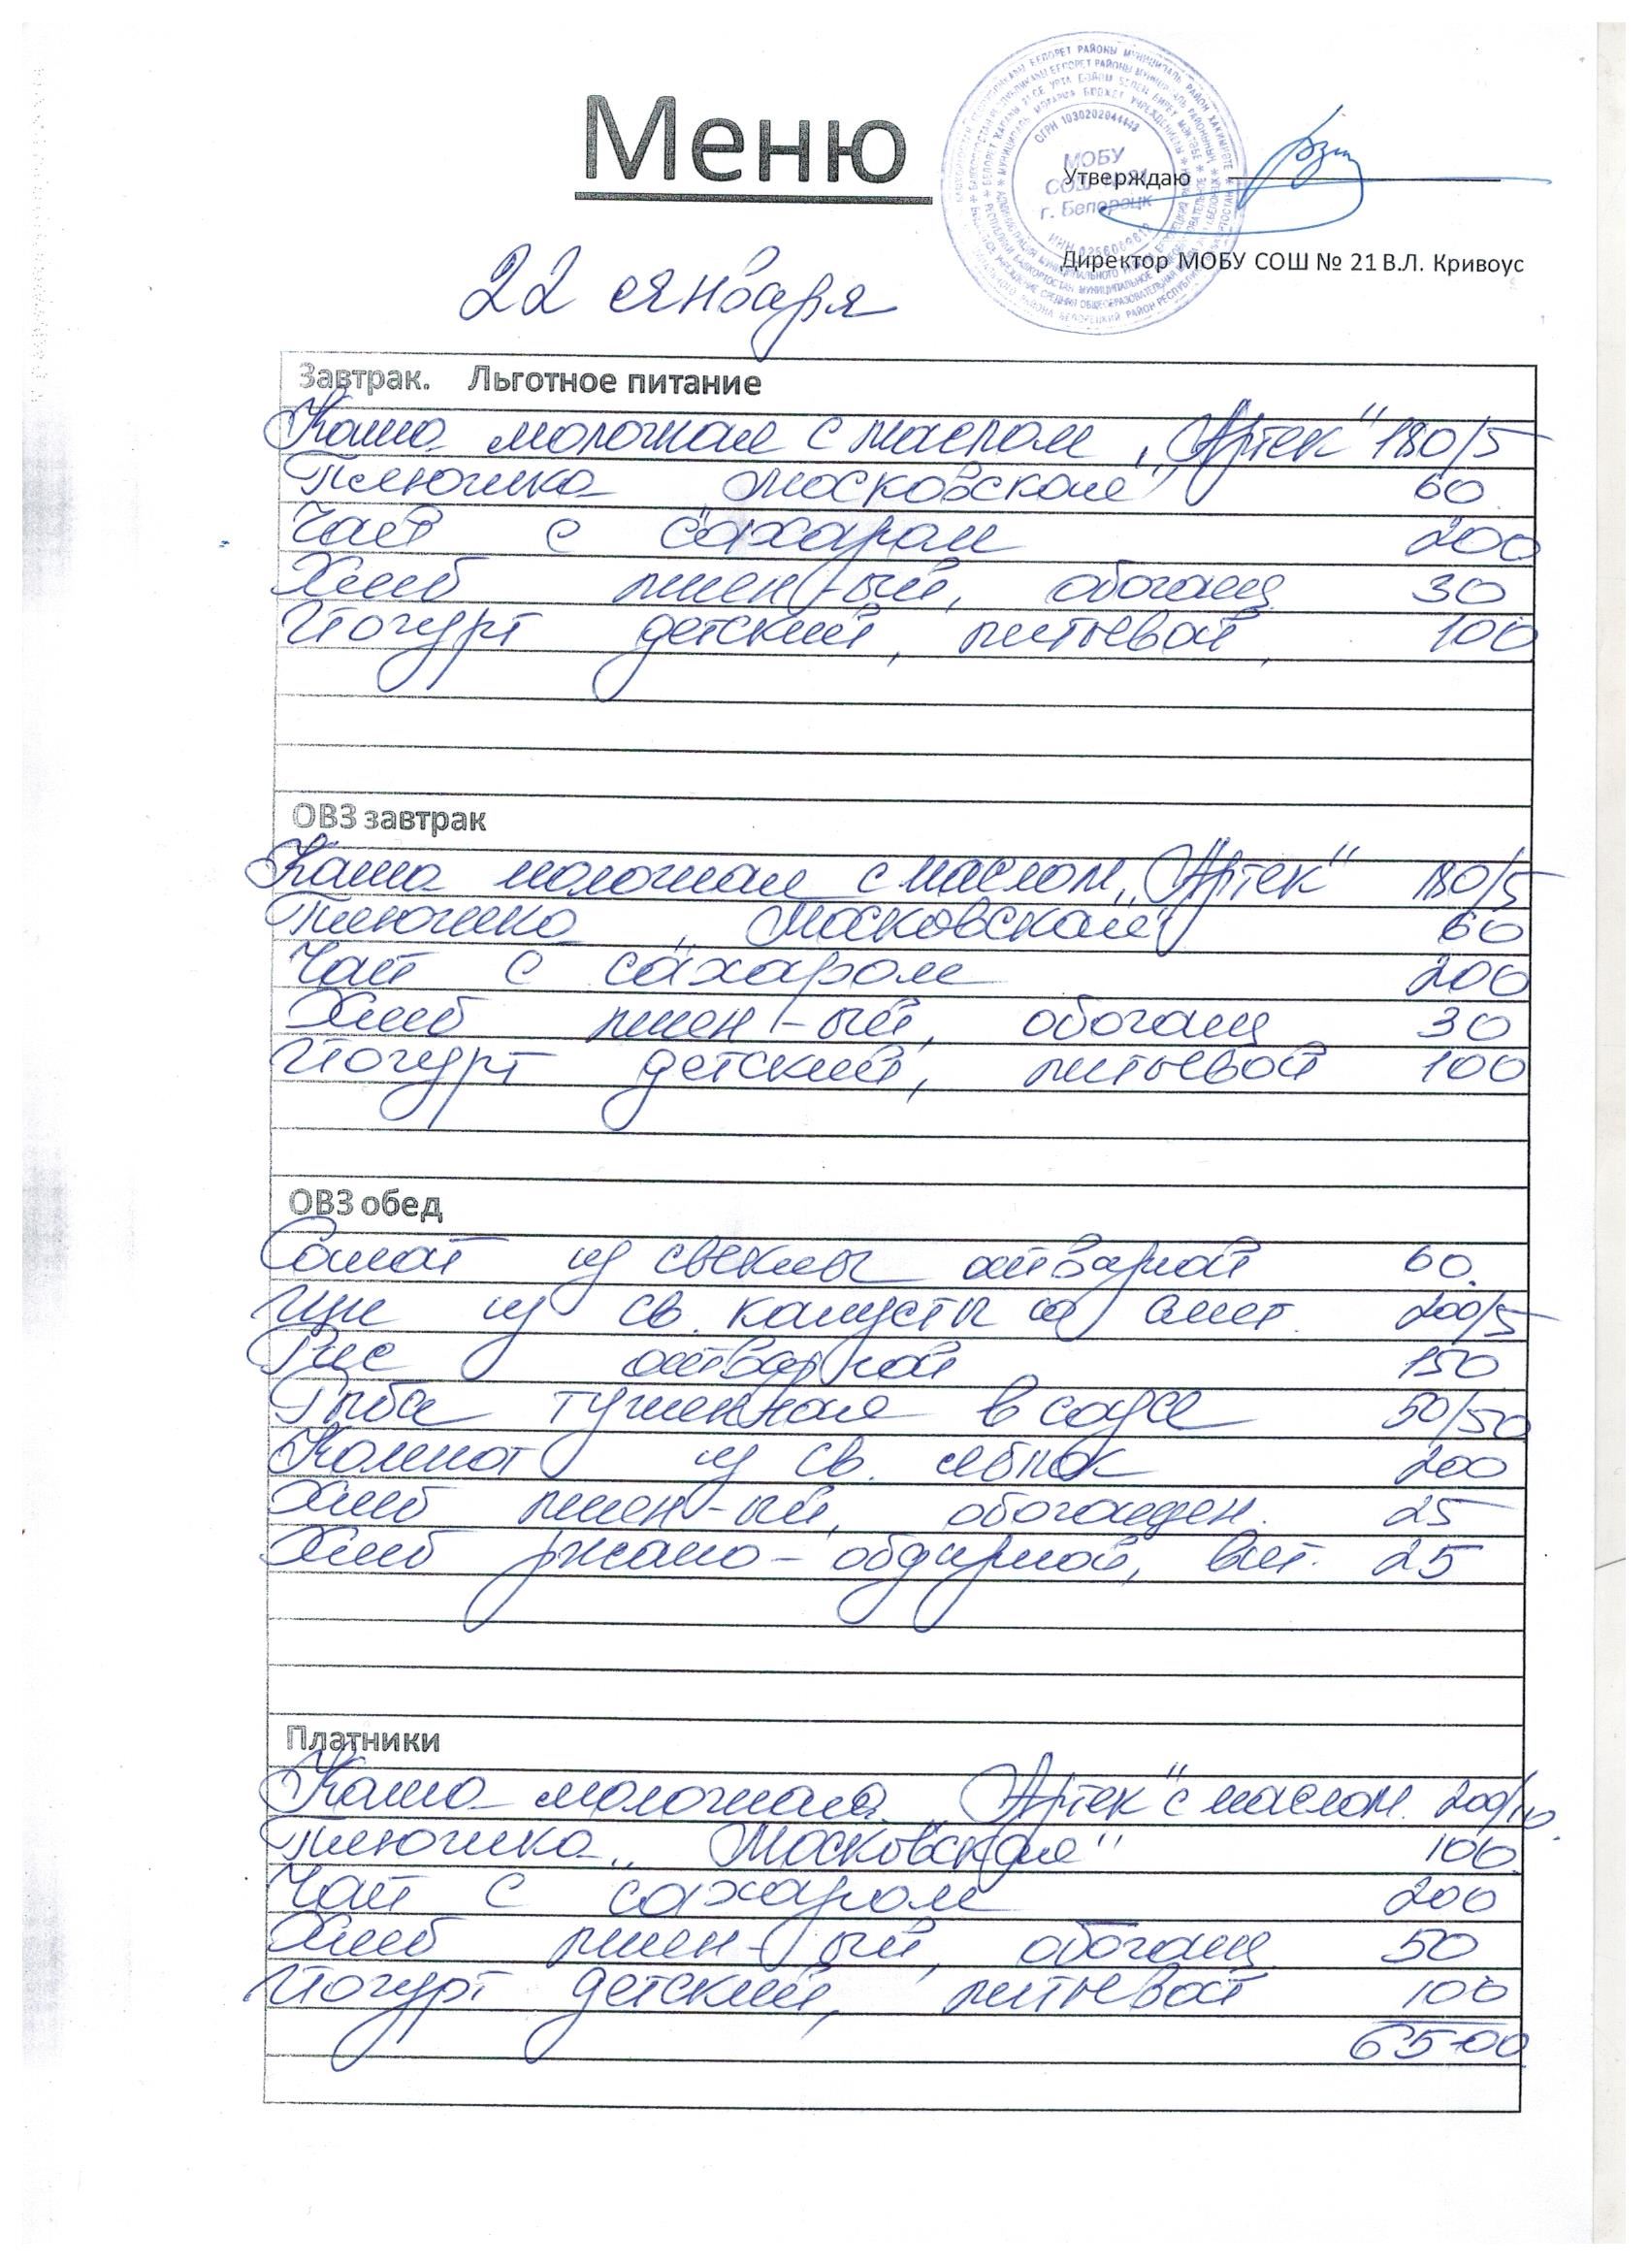 Меню
ОГРН 1030202044443
МОБУ
г. Белорецк
Утверждаю
Директор МОБУ СОШ № 21 В.Л. Кривоус
22 января
Завтрак. Льготное питание
Каша молочная с маслом „Артек" 180/5
Плюшка „Московская" 60
Чай с сахаром 200
Хлеб пшен-ый, обогащ 30
Йогурт детский, питьевой, 100
ОВЗ завтрак
Каша молочная с маслом „Артек" 180/5
Плюшка „Московская" 60
Чай с сахаром 200
Хлеб пшен-ый, обогащ 30
Йогурт детский, питьевой 100
ОВЗ обед
Салат из свеклы отварной 60.
Щи из св. капусты со смет. 200/5
Рис отварной 150
Рыба тушенная в соусе 50/50
Компот из св. яблок 200
Хлеб пшен-ый, обогащен. 25
Хлеб ржано-обдирной, вит. 25
Платники
Каша молочная „Артек" с маслом. 200/10.
Плюшка „Московская" 100
Чай с сахаром 200
Хлеб пшен-ый, обогащ 50
Йогурт детский, питьевой 100
65-00